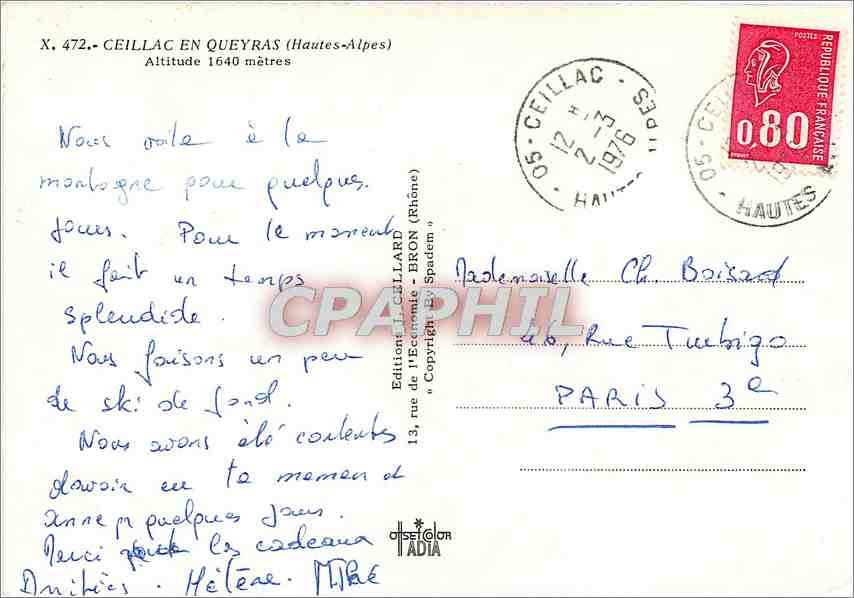 X. 472.- CEILLAC EN QUEYRAS (Hautes-Alpes)
Altitude 1640 mètres
Nous voila à la
montagne pour quelques
jours. Pour le moment
il fait un temps
splendide.
Nous faisons un peu
de ski de fond.
Nous avons été contentes
davoir eu ta maman d
anne pr quelques jours.
Merci les cadeaux
Amitiés. Hélène.
Editions J. CELLARD
13, rue de l'Economie - BRON (Rhône)
" Copyright By Spadem "
OFFSETCOLOR
IADIA
05 - CEILLAC - HAUTES ALPES
12 H
2 - 3
1976
05 - CEILLAC
HAUTES
POSTES
REPUBLIQUE FRANÇAISE
0,80
Mademoiselle Ch. Boisard
46, Rue Turbigo
PARIS 3e
CPAPHIL